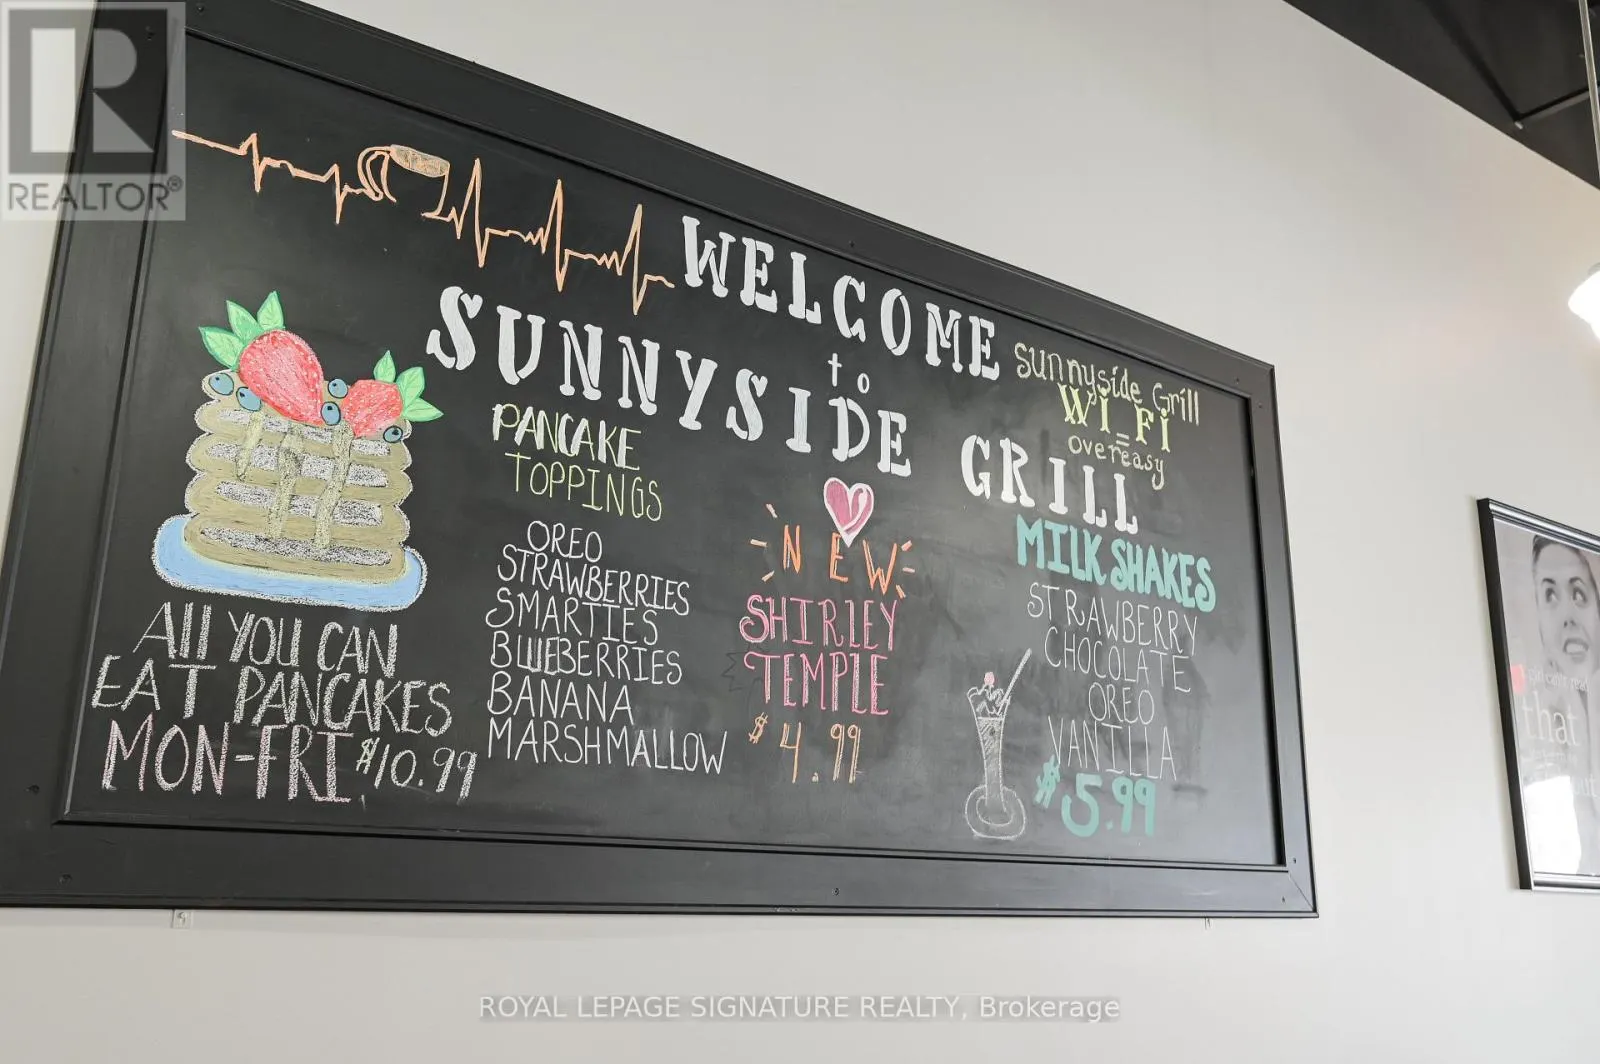 REALTOR®
WELCOME
to
SUNNYSIDE GRILL
sunnyside Grill
Wi-Fi
overeasy
PANCAKE
TOPPINGS
OREO
STRAWBERRIES
SMARTIES
BLUEBERRIES
BANANA
MARSHMALLOW
All YOU CAN
EAT PANCAKES
MON-FRI $10.99
NEW
SHIRLEY
TEMPLE
$4.99
MILKSHAKES
STRAWBERRY
CHOCOLATE
OREO
VANILLA
$5.99
that
ROYAL LEPAGE SIGNATURE REALTY, Brokerage